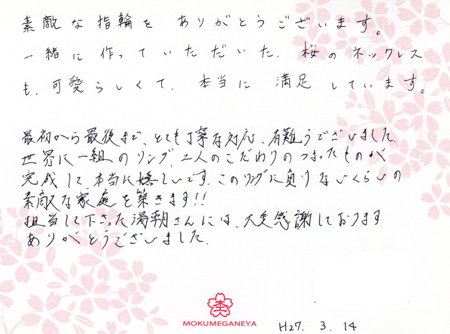 素敵な指輪を ありがとうございます。
一緒に作っていただいた、桜のネックレス
も、可愛らしくて、本当に満足しています。
最初から最後まで、とても丁寧な対応、有難うございました。
世界に一組のリング、二人のこだわりのつまったものが
完成して、本当に嬉しいです。このリングに負けないくらいの
素敵な家庭を築きます!!
担当して下さった さんには、大変感謝しております
ありがとうございました。
MOKUMEGANEYA
H27. 3. 14